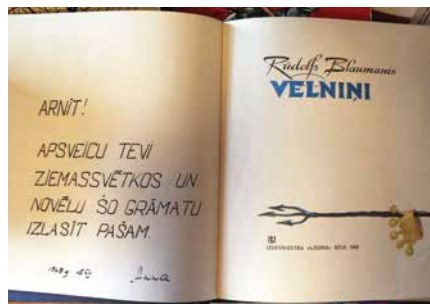 ARNIT!
APSVEICU TEVI
ZIEMASSVĒTKOS UN
NOVĒLU ŠO GRĀMATU
IZLASĪT PAŠAM.
Anna
Rūdolfs Blaumanis
VELNIŅI
IZDEVNIECĪBA «LIESMA» RĪGA